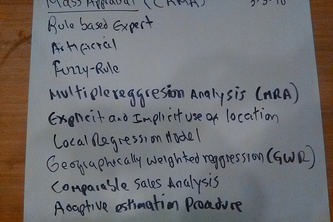 Mass Appraisal (CAMA)
Rule based Expert
Artificial
Fuzzy-Rule
Multiple reggresion Analysis (MRA)
Explicit and Implicit use of location
Local Regression Model
Geographically weighted reggression (GWR)
Comparable Sales Analysis
Adaptive estimation Procedure